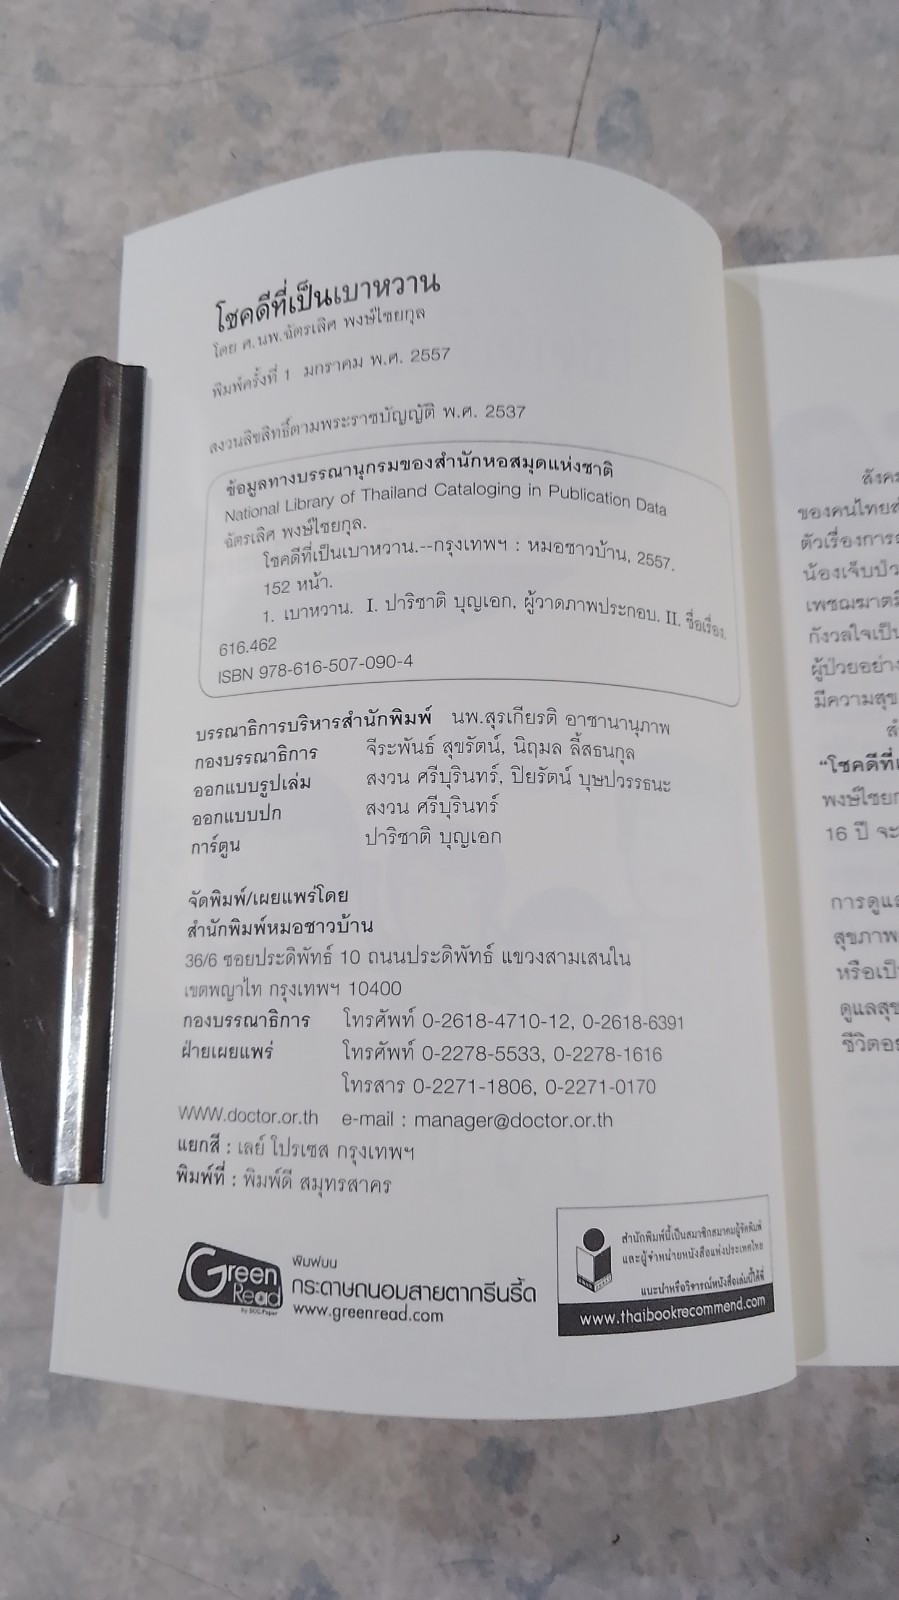 โชคดีที่เป็นเบาหวาน
โดย ศ.นพ.ฉัตรเลิศ พงษ์ไชยกุล
พิมพ์ครั้งที่ 1 มกราคม พ.ศ. 2557
สงวนลิขสิทธิ์ตามพระราชบัญญัติ พ.ศ. 2537
ข้อมูลทางบรรณานุกรมของสำนักหอสมุดแห่งชาติ
National Library of Thailand Cataloging in Publication Data
ฉัตรเลิศ พงษ์ไชยกุล.
โชคดีที่เป็นเบาหวาน.--กรุงเทพฯ : หมอชาวบ้าน, 2557.
152 หน้า.
1. เบาหวาน. I. ปาริชาติ บุญเอก, ผู้วาดภาพประกอบ. II. ชื่อเรื่อง.
616.462
ISBN 978-616-507-090-4
บรรณาธิการบริหารสำนักพิมพ์ นพ.สุรเกียรติ อาชานานุภาพ
กองบรรณาธิการ จีระพันธ์ สุขรัตน์, นิฤมล ลี้สธนกุล
ออกแบบรูปเล่ม สงวน ศรีบุรินทร์, ปิยรัตน์ บุษปวรรธนะ
ออกแบบปก สงวน ศรีบุรินทร์
การ์ตูน ปาริชาติ บุญเอก
จัดพิมพ์/เผยแพร่โดย
สำนักพิมพ์หมอชาวบ้าน
36/6 ซอยประดิพัทธ์ 10 ถนนประดิพัทธ์ แขวงสามเสนใน
เขตพญาไท กรุงเทพฯ 10400
กองบรรณาธิการ โทรศัพท์ 0-2618-4710-12, 0-2618-6391
ฝ่ายเผยแพร่ โทรศัพท์ 0-2278-5533, 0-2278-1616
โทรสาร 0-2271-1806, 0-2271-0170
WWW.doctor.or.th e-mail : manager@doctor.or.th
แยกสี : เลย์ โปรเซส กรุงเทพฯ
พิมพ์ที่ : พิมพ์ดี สมุทรสาคร
Green Read
by SCG Paper
พิมพ์บน
กระดาษถนอมสายตากรีนรี้ด
www.greenread.com
สำนักพิมพ์นี้เป็นสมาชิกสมาคมผู้จัดพิมพ์
และผู้จำหน่ายหนังสือแห่งประเทศไทย
แนะนำหรือวิจารณ์หนังสือเล่มนี้ได้ที่
www.thaibookrecommend.com
สังค
ของคนไทย
ตัวเรื่องการ
น้องเจ็บป่ว
เพชฌฆาต
กังวลใจเป็น
ผู้ป่วยอย่าง
มีความสุข
"โชคดีที่
พงษ์ไชย
16 ปี จะ
การดูแล
สุขภาพ
หรือเป็
ดูแลสุข
ชีวิตอย